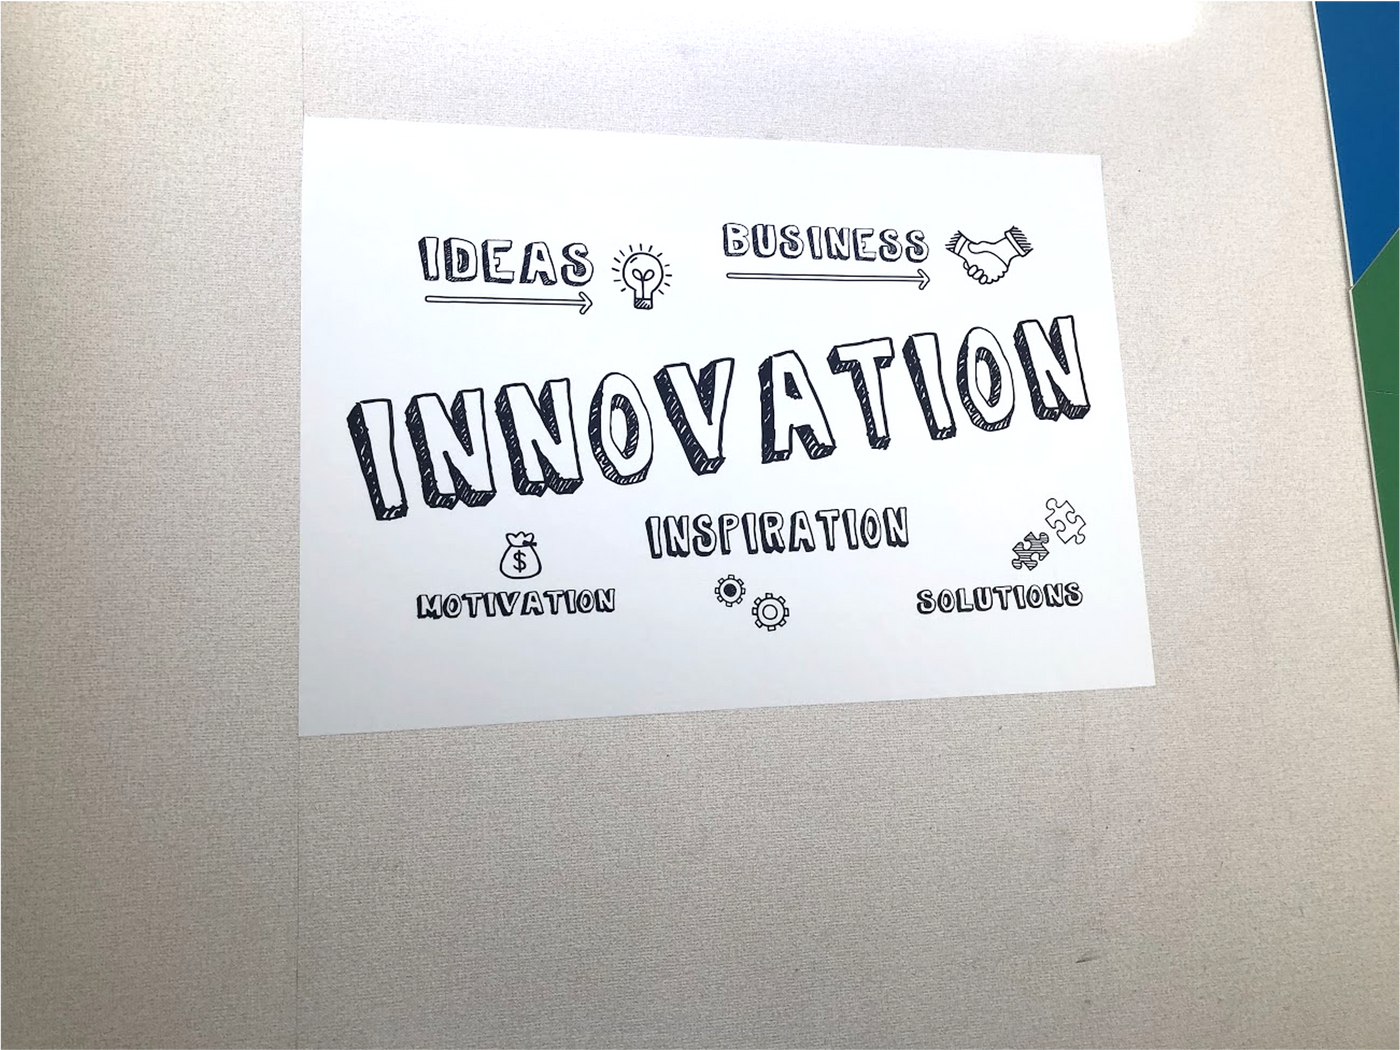 IDEAS
BUSINESS
INNOVATION
INSPIRATION
$
MOTIVATION
SOLUTIONS